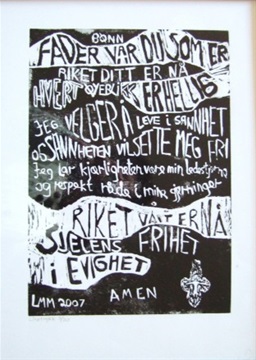 BØNN
FADER VÅR DU SOM ER
RIKET DITT ER NÅ
HVERT ØYEBLIKK ER HELLIG
JEG VELGER Å LEVE I SANNHET
OG SANNHETEN VIL SETTE MEG FRI
Jeg lar kjærligheten være min ledestjerne
og respekt råde i mine gjerninger
RIKET VÅRT ER NÅ
SJELENS FRIHET
I EVIGHET
LMM 2007 AMEN